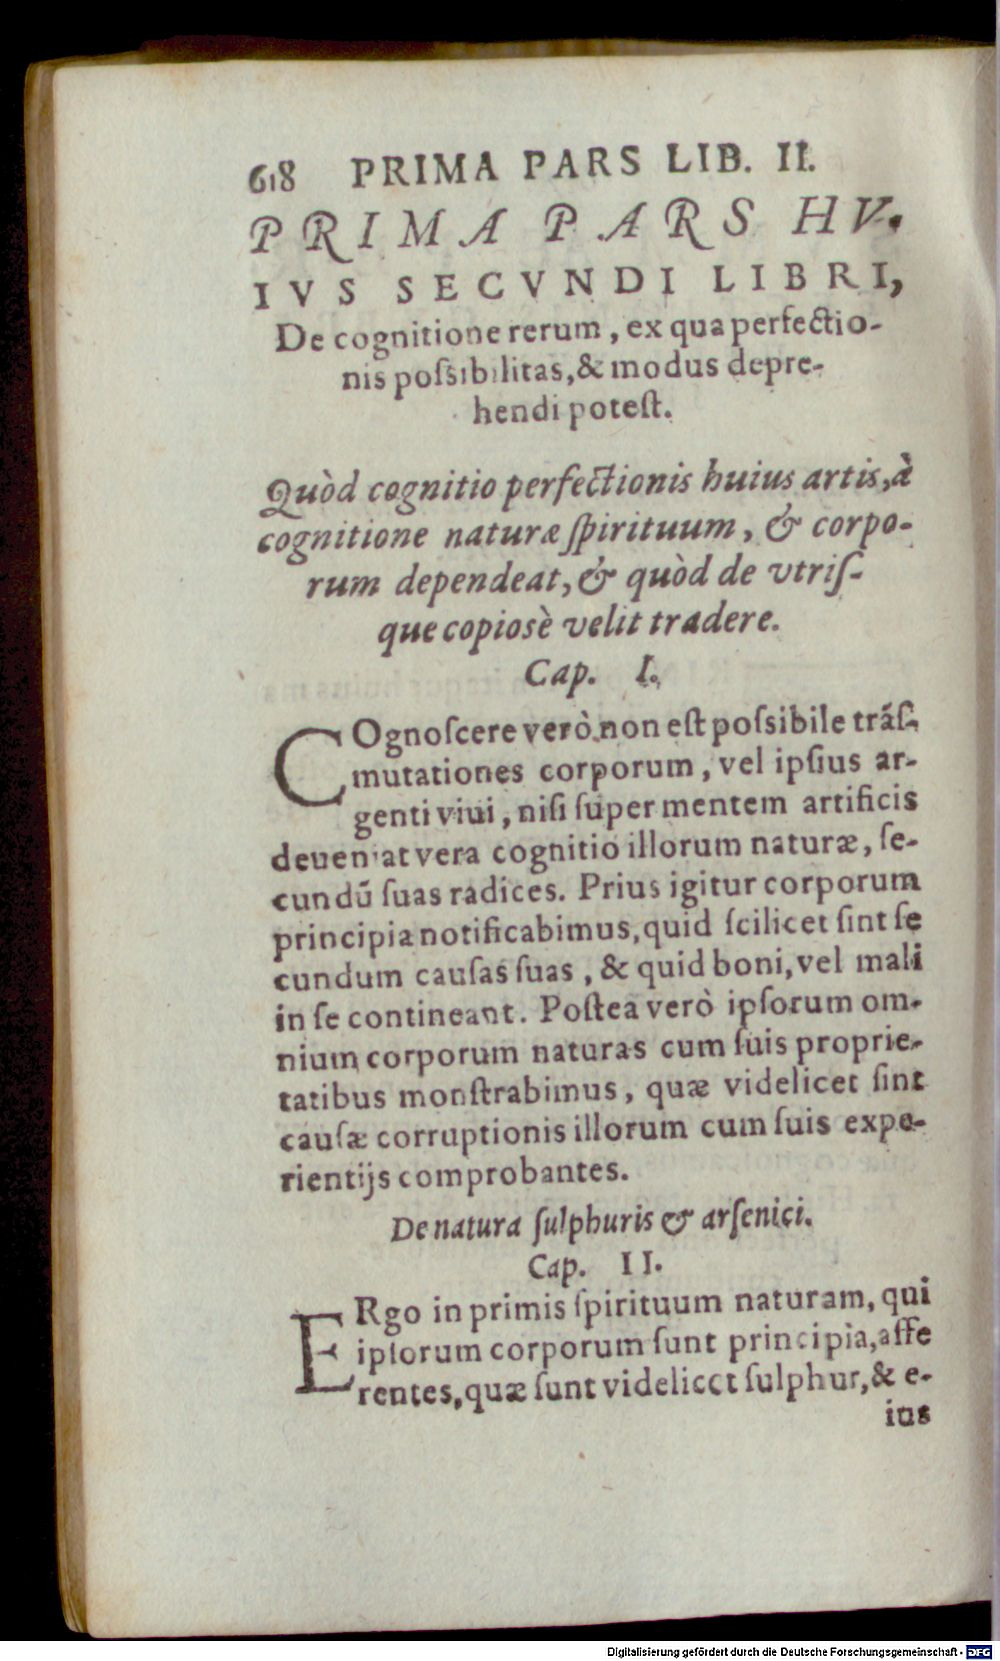 618 PRIMA PARS LIB. II.
PRIMA PARS HV-
IVS SECVNDI LIBRI,
De cognitione rerum, ex qua perfectio-
nis poſsibilitas, & modus depre-
hendi poteſt.
Quòd cognitio perfectionis huius artis, à
cognitione naturæ ſpirituum, & corpo-
rum dependeat, & quòd de vtriſ-
que copiosè velit tradere.
Cap. I.
COgnoſcere verò non eſt poſsibile trãſ-
mutationes corporum, vel ipſius ar-
genti viui, niſi ſuper mentem artificis
deueniat vera cognitio illorum naturæ, ſe-
cundũ ſuas radices. Prius igitur corporum
principia notificabimus, quid ſcilicet ſint ſe
cundum cauſas ſuas, & quid boni, vel mali
in ſe contineant. Poſtea verò ipſorum om-
nium corporum naturas cum ſuis proprie-
tatibus monſtrabimus, quæ videlicet ſint
cauſæ corruptionis illorum cum ſuis expe-
rientijs comprobantes.
De natura ſulphuris & arſenici.
Cap. II.
ERgo in primis ſpirituum naturam, qui
ipſorum corporum ſunt principia, aſſe
rentes, quæ ſunt videlicet ſulphur, & e-
ius
Digitalisierung gefördert durch die Deutsche Forschungsgemeinschaft - DFG